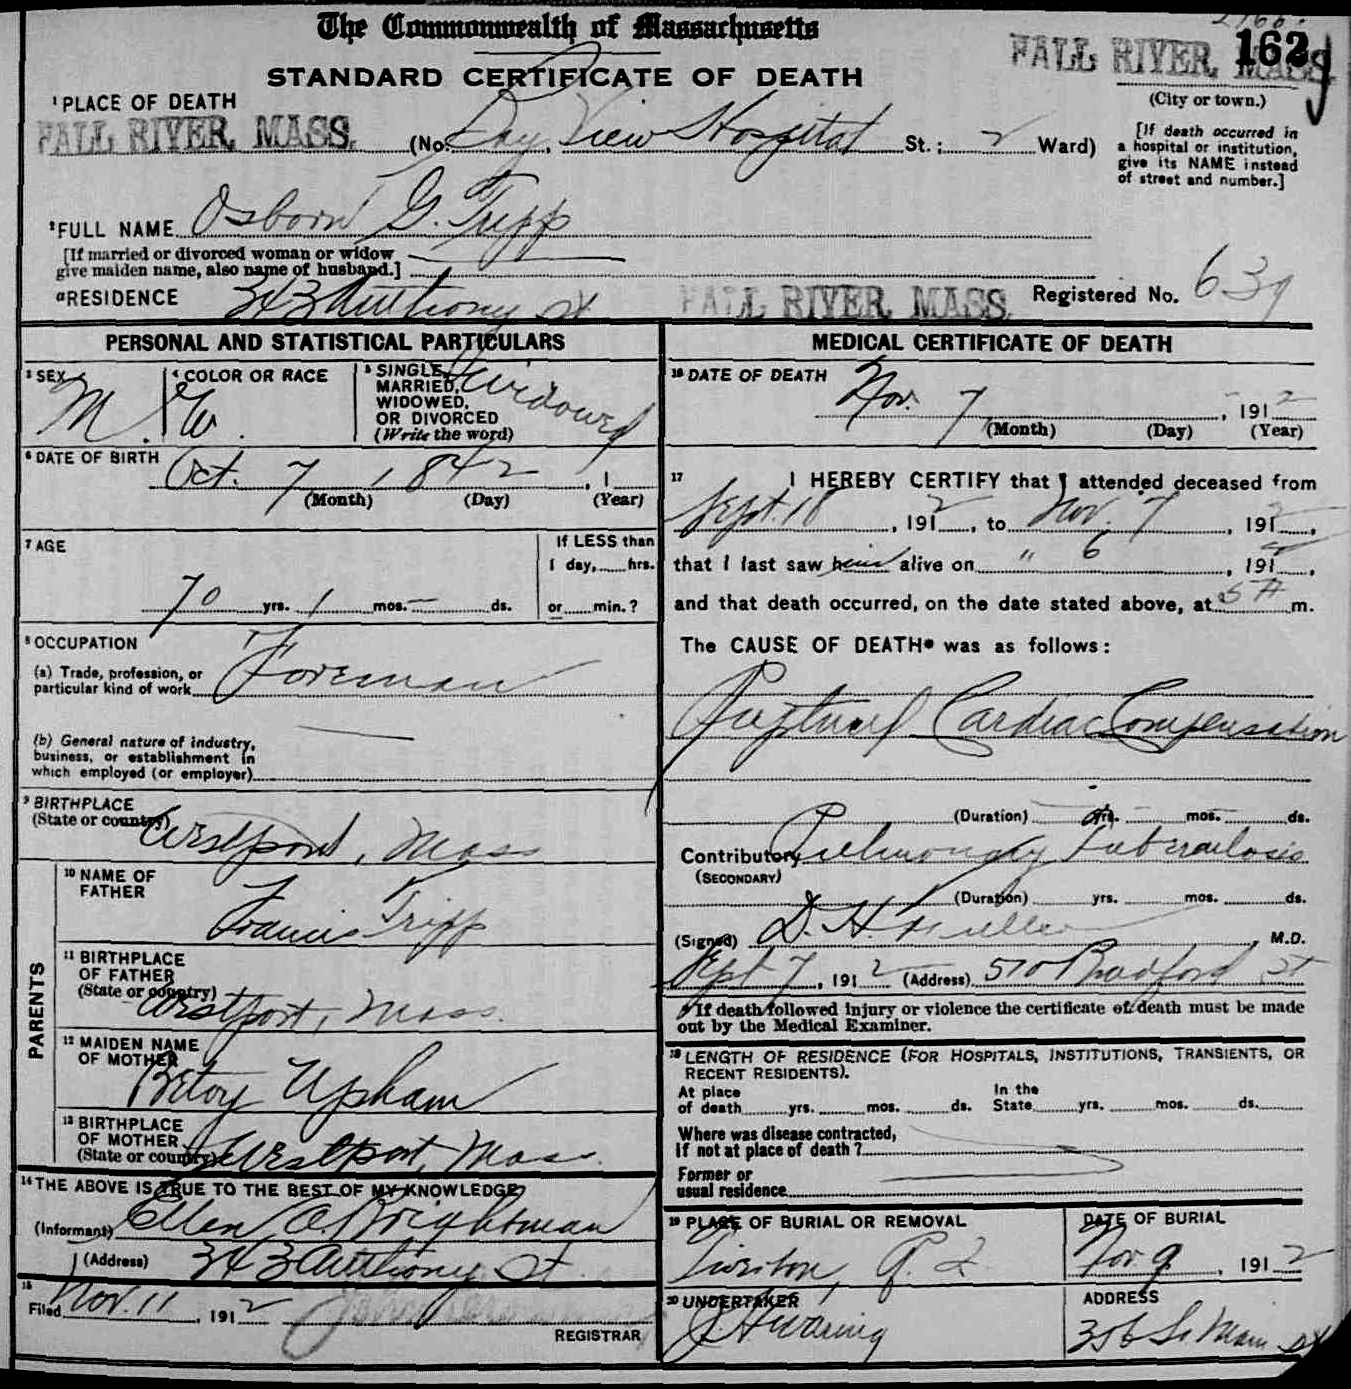 The Commonwealth of Massachusetts
STANDARD CERTIFICATE OF DEATH
162
FALL RIVER, MASS.
(City or town.)
1 PLACE OF DEATH
FALL RIVER, MASS. (No. Bay View Hospital St.; 2 Ward)
[If death occurred in
a hospital or institution,
give its NAME instead
of street and number.]
2 FULL NAME Osborn G. Tripp
[If married or divorced woman or widow
give maiden name, also name of husband.]
a RESIDENCE 343 Anthony St FALL RIVER, MASS. Registered No. 639
PERSONAL AND STATISTICAL PARTICULARS
3 SEX M. 4 COLOR OR RACE W. 5 SINGLE, MARRIED, WIDOWED, OR DIVORCED (Write the word) Widowed
6 DATE OF BIRTH Oct. 7, 1842, 1
(Month) (Day) (Year)
7 AGE
70 yrs. 1 mos. — ds.
If LESS than
1 day, hrs.
or min.?
8 OCCUPATION
(a) Trade, profession, or
particular kind of work Foreman
(b) General nature of industry,
business, or establishment in
which employed (or employer)
9 BIRTHPLACE
(State or country) Westport, Mass
PARENTS
10 NAME OF
FATHER Francis Tripp
11 BIRTHPLACE
OF FATHER
(State or country) Westport, Mass.
12 MAIDEN NAME
OF MOTHER Betsy Upham
13 BIRTHPLACE
OF MOTHER
(State or country) Westport, Mass.
14 THE ABOVE IS TRUE TO THE BEST OF MY KNOWLEDGE
(Informant) Ellen A Brightman
(Address) 343 Anthony St.
15
Filed Nov. 11, 1912
REGISTRAR
MEDICAL CERTIFICATE OF DEATH
16 DATE OF DEATH
Nov. 7, 1912
(Month) (Day) (Year)
17 I HEREBY CERTIFY that I attended deceased from
Sept. 18, 1912, to Nov. 7, 1912,
that I last saw him alive on " 6, 191,
and that death occurred, on the date stated above, at 5 A m.
The CAUSE OF DEATH* was as follows:
Ruptured Cardiac Compensation
(Duration) yrs. mos. ds.
Contributory Pulmonary Tuberculosis
(SECONDARY)
(Duration) yrs. mos. ds.
(Signed) D. H. Fuller, M.D.
Sept 7, 1912 (Address) 510 Bradford St
* If death followed injury or violence the certificate of death must be made
out by the Medical Examiner.
18 LENGTH OF RESIDENCE (FOR HOSPITALS, INSTITUTIONS, TRANSIENTS, OR
RECENT RESIDENTS).
At place
of death yrs. mos. ds.
In the
State yrs. mos. ds.
Where was disease contracted,
If not at place of death?
Former or
usual residence
19 PLACE OF BURIAL OR REMOVAL
Tiverton, R. I.
DATE OF BURIAL
Nov 9, 1912
20 UNDERTAKER
J H Waring
ADDRESS
356 So. Main St